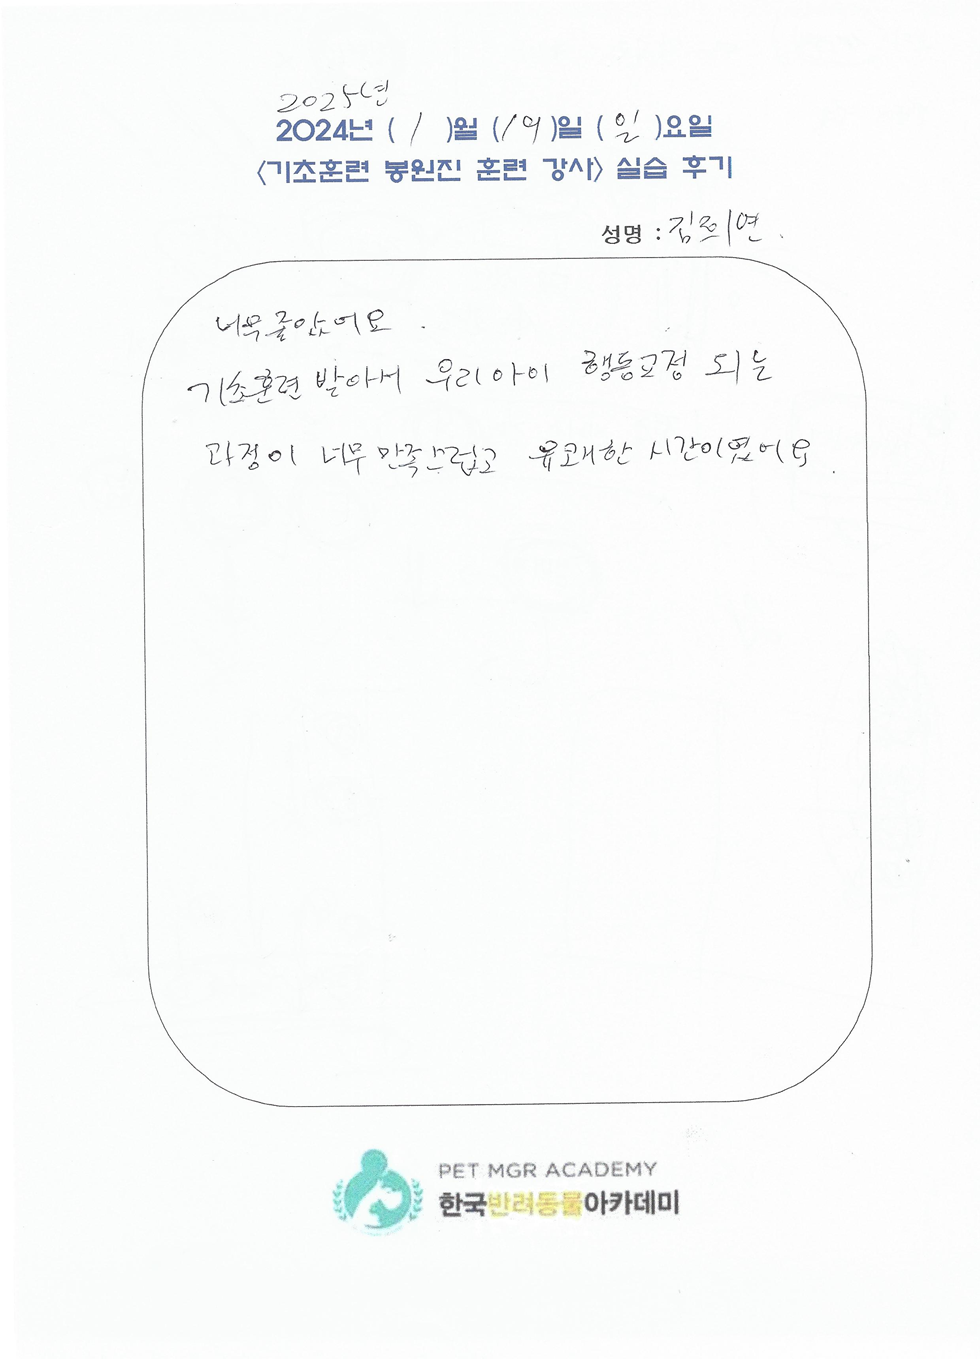 2025년
2024년 ( 1 )월 (19)일 ( 일 )요일
<기초훈련 봉원진 훈련 강사> 실습 후기
성명 : 김희연.
너무 좋았어요.
기초훈련 받아서 우리아이 행동교정 되는
과정이 너무 만족스럽고 유쾌한 시간이였어요.
PET MGR ACADEMY
한국반려동물아카데미